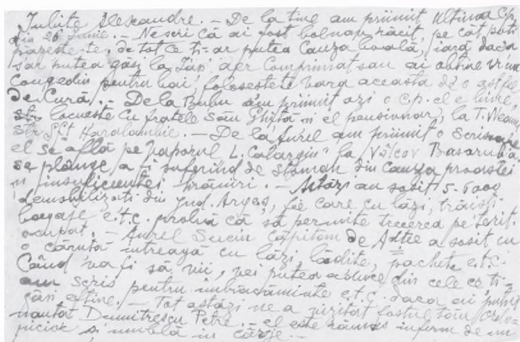 Iubite Alexandre. – De la tine am primit ultima C.p.
din 26 Iunie. – Ne scri că ai fost bolnav, răcit, pe cât poți
păzește-te, de tot ce ți-ar putea cauza boală, iară dacă
s'ar putea găsi la Iași aer comprimat sau ai obține vr'un
concediu pentru băi, folosește vara aceasta de o astfel
de Cură. – De la Bubu am primit azi o c.p. el e bine,
locuește cu fratele său Ghiță și el pensionar, la T. Neamț
str. Sf. Haralambie. – De la Aurel am primit o scrisoare
el se află pe vaporul L. Catargiu la Vâlcov Basarabia
se plânge a fi suferind de stomah din cauza proastei
și insuficientei hrăniri. – Astăzi au sosit 5-6000
demobilizați din Jud. Argeș, fie care cu lăzi, trăiști
bagaje e.t.c. probă că să permite trecerea pe terit.
ocupat. – Aurel Suciu Căpitan de Adtie a sosit cu
o căruță întreagă cu lăzi, ladițe, pachete etc.
Când va fi să vii, vei putea aduce din cele ce ți-
am scris pentru îmbrăcăminte e.t.c. dacă ai primit
căci ține. – Tot astăzi ne a vizitat fostul tău
Dumitrescu Petre. – el este rămas infirm de un
picior și umblă în cârje. –